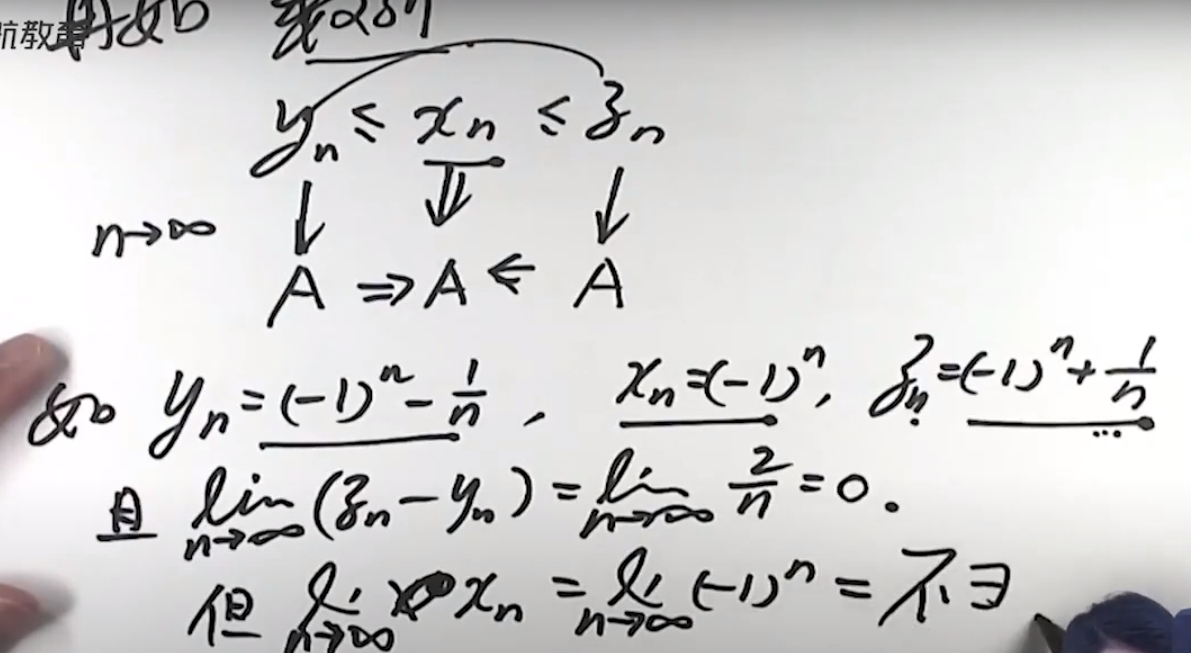 航教育
再如
yₙ ≤ xₙ ≤ zₙ
n→∞ ↓ ⇓ ↓
A ⇒ A ⇐ A
如 yₙ = (-1)ⁿ - 1/n , xₙ = (-1)ⁿ, zₙ = (-1)ⁿ + 1/n
且 lim n→∞ (zₙ - yₙ) = lim n→∞ 2/n = 0.
但 lim n→∞ xₙ = lim n→∞ (-1)ⁿ = 不∃